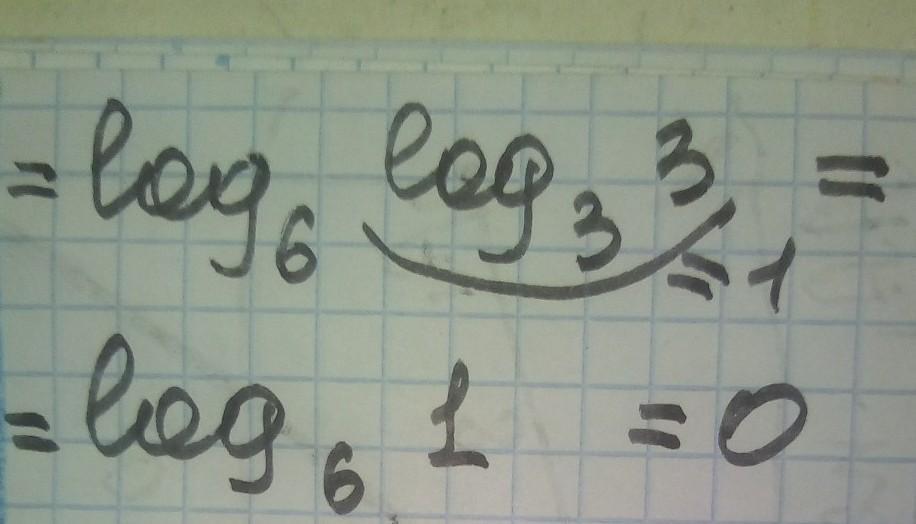 = log₆ log₃ 3 =
= 1
= log₆ 1 = 0